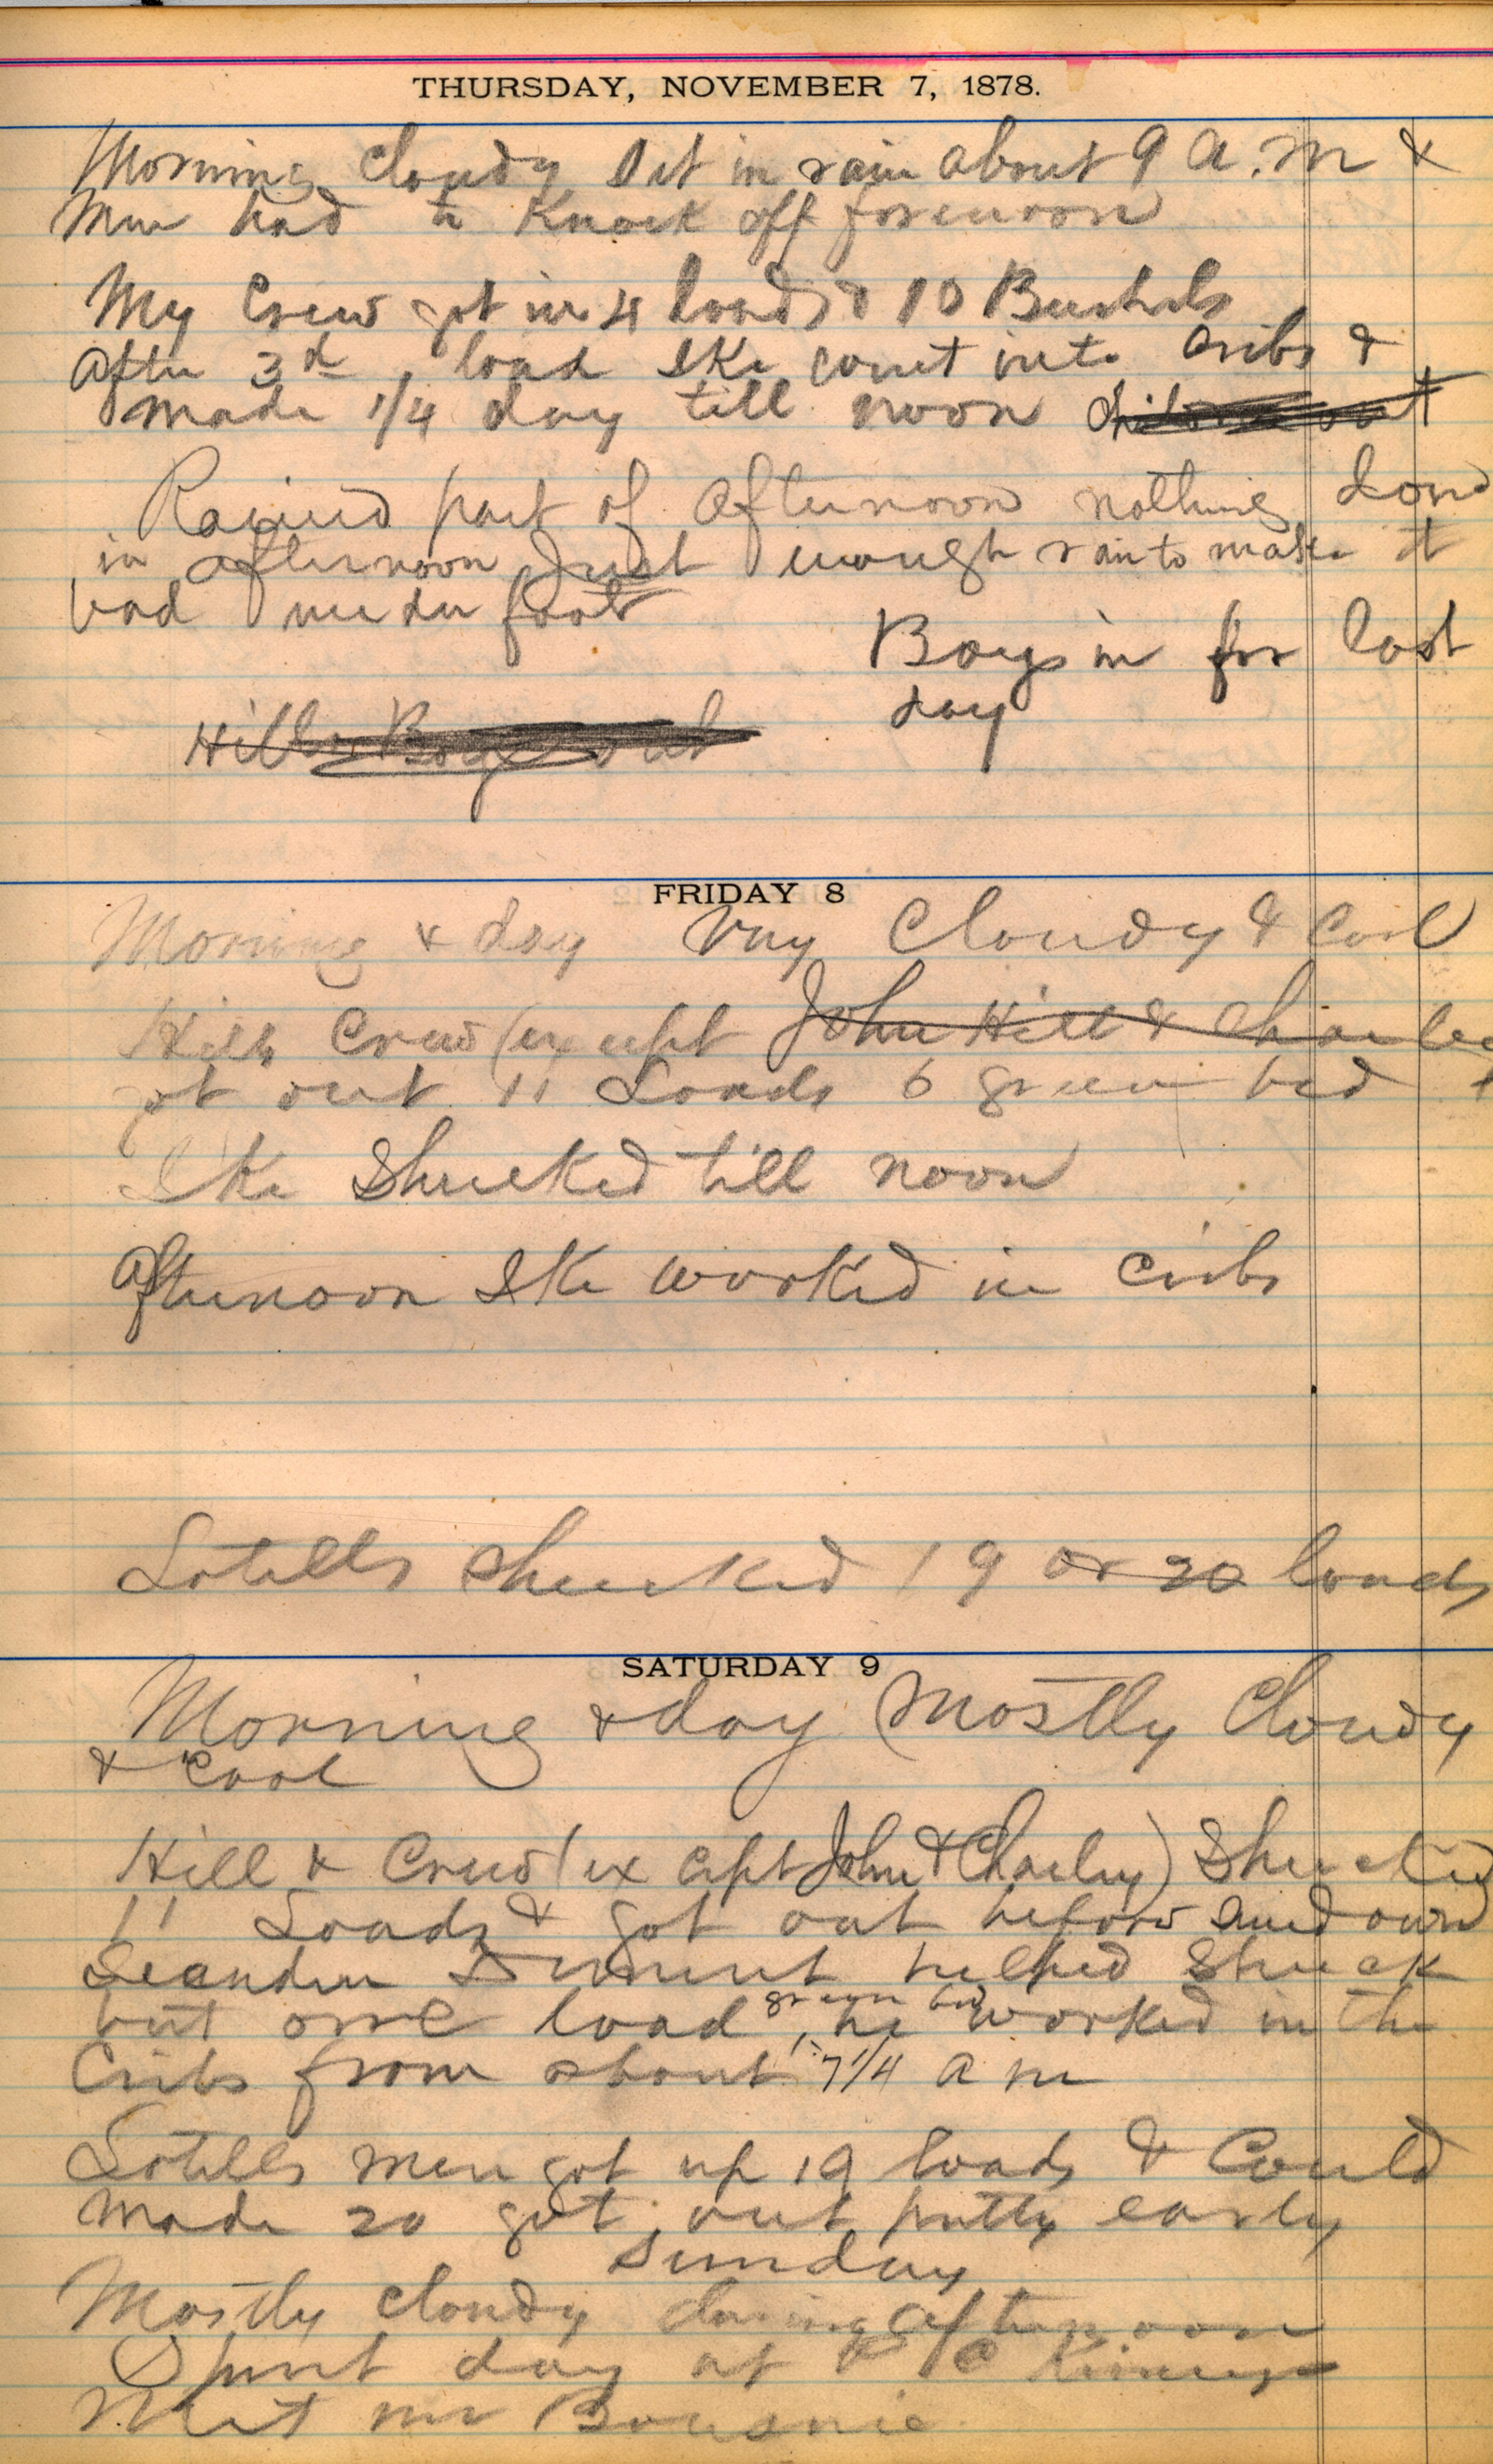 THURSDAY, NOVEMBER 7, 1878.
Morning Cloudy Set in rain about 9 a.m &
Men had to Knock off forenoon
My Crew got in 4 loads & 10 Bushels
After 3d load Ike went into Cribs &
made 1/4 day till noon
Rained part of afternoon nothing done
in afternoon Just enough rain to make it
bad under foot
Boys in for last
day
Hills Boys out
FRIDAY 8
Morning & day Very Cloudy & Cool
Hills Crew (except John Hill & Charley
got out 11 Loads 6 green bed
Ike Shucked till noon
Afternoon Ike worked in Cribs
Lotells shucked 19 or 20 loads
SATURDAY 9
Morning & day Mostly Cloudy
& Cool
Hill & Crew (except John & Charley) Shucked
11 Loads & got out before Sundown
Leander helped Shuck
but one load green bed, he worked in the
Cribs from about 7 1/4 a m
Lotells men got up 19 loads & Could
made 20 got out pretty early
Sunday
Mostly cloudy during afternoon
Spent day at
Met mr